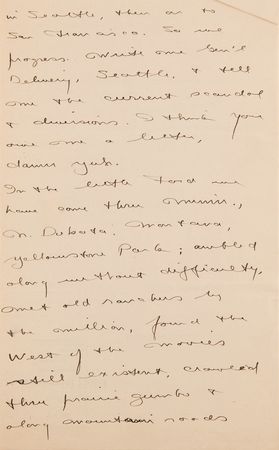 in Seattle, then on to
San Francisco. So we
progress. Write me Gen'l
Delivery, Seattle, & tell
me the current scandal
& divisions. I think you
owe me a letter,
damn yuh.
In the little Ford we
have come thru Minn.,
N. Dakota, Montana,
Yellowstone Park; ambled
along without difficulty,
met old ranchers by
the million, found the
West of the movies
still existent, crawled
thru prairie gumbo &
along mountain roads